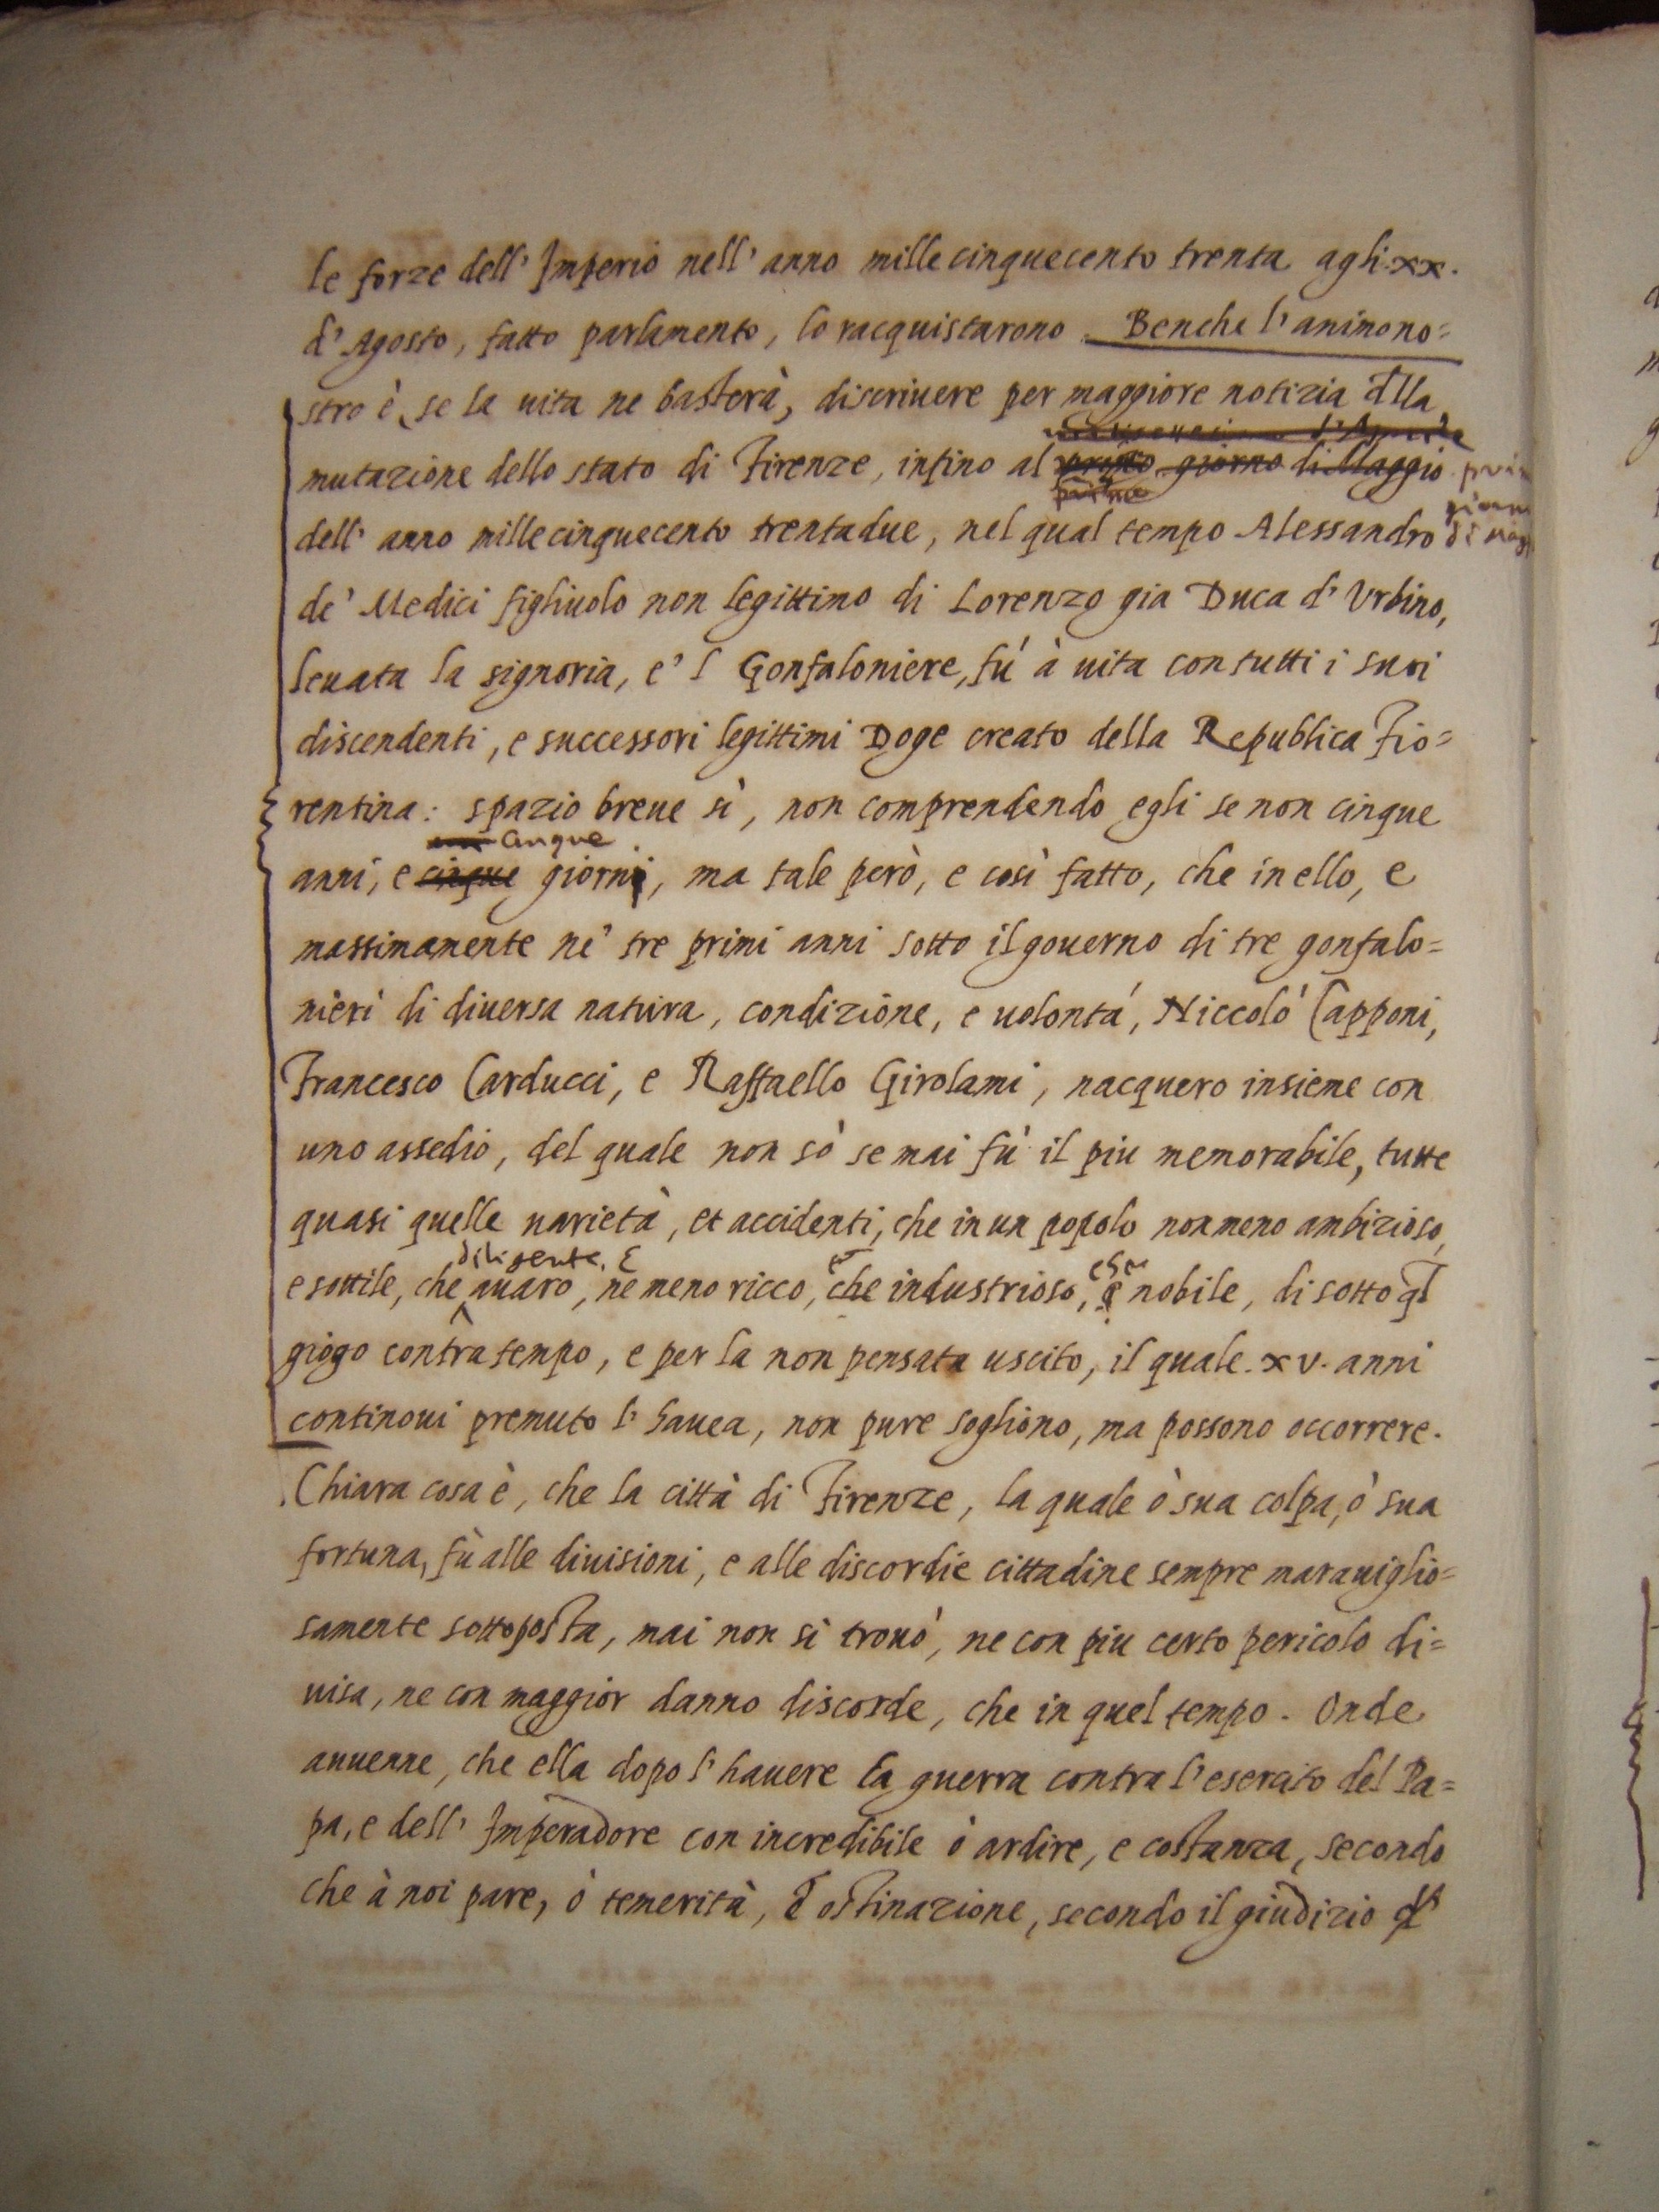 le forze dell' Imperio nell' anno mille cinquecento trenta agli .xx.
d' Agosto, fatto parlamento, lo racquistarono. Benche l' animo no=
stro è, se la uita ne basterà, discriuere per maggiore notizia dlla
d'Aprile
mutazione dello stato di Firenze, infino al primo giorno di Maggio
primo
giorno
di
dell' anno mille cinquecento trentadue, nel qual tempo Alessandro
de' Medici figliuolo non legittimo di Lorenzo gia Duca d' Vrbino,
leuata la signoria, e' l Gonfaloniere, fú à uita con tutti i suoi
discendenti, e successori legittimi Doge creato della Republica Fio=
rentina: spazio breue sì, non comprendendo egli se non cinque
cinque
anni, e cinque giorni, ma tale però, e così fatto, che in ello, e
massimamente ne' tre primi anni sotto il gouerno di tre gonfalo=
nieri di diuersa natura, condizione, e uolontá, Niccoló Capponi,
Francesco Carducci, e Raffaello Girolami, nacquero insieme con
uno assedio, del quale non sò se mai fù il piu memorabile, tutte
quasi quelle uarietà, et accidenti, che in un popolo non meno ambizioso,
diligente, e
e
che
e sottile, che auaro, ne meno ricco, che industrioso, e nobile, di sotto ql
giogo contra tempo, e per la non pensata uscito, il quale .xv. anni
continoui premuto l' hauea, non pure sogliono, ma possono occorrere.
Chiara cosa è, che la città di Firenze, la quale ò sua colpa, ò sua
fortuna, fù alle diuisioni, e alle discordie cittadine sempre marauiglio=
samente sottoposta, mai non si trouò, ne con piu certo pericolo di=
uisa, ne con maggior danno discorde, che in quel tempo. Onde
auuenne, che ella dopo l' hauere la guerra contra l' esercito del Pa=
pa, e dell' Imperadore con incredibile ò ardire, e costanza, secondo
che à noi pare, ò temerità, e ostinazione, secondo il giudizio